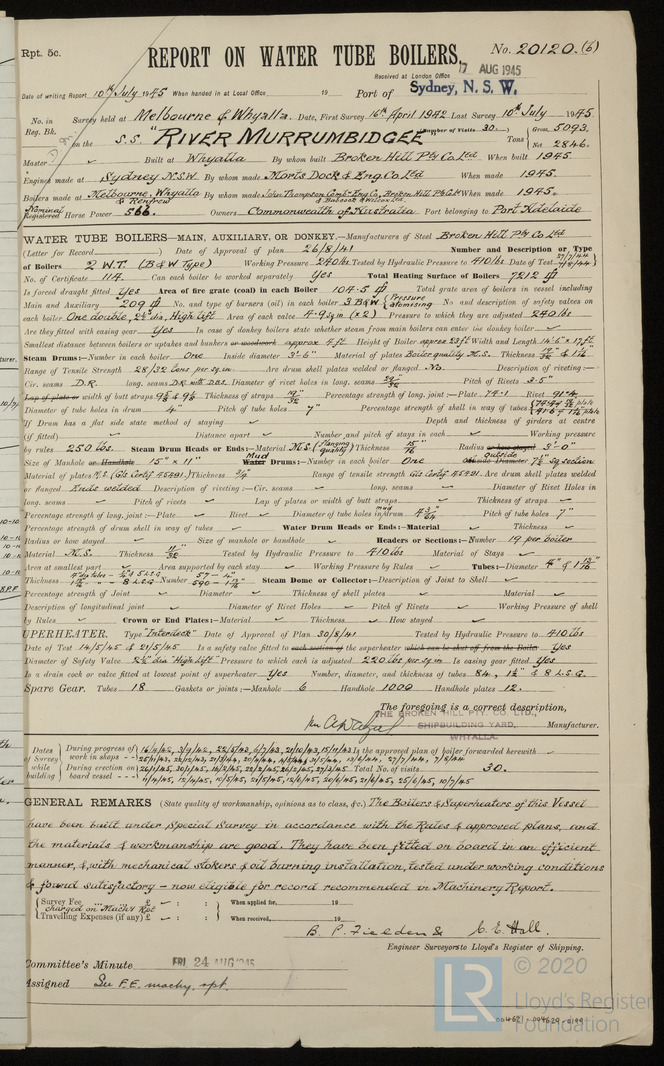 Rpt. 5c.
REPORT ON WATER TUBE BOILERS.
No. 20120.(6)
Received at London Office
17 AUG 1945
Date of writing Report 10th July 1945 When handed in at Local Office 19 Port of Sydney, N. S. W.
No. in Survey held at Melbourne & Whyalla. Date, First Survey 16th April 1942 Last Survey 10th July 1945
Reg. Bk. (Number of Visits 30.)
on the S.S. "RIVER MURRUMBIDGEE" Tons Gross 5093. Net 2846.
Master ✓ Built at Whyalla By whom built Broken Hill Pty Co Ltd When built 1945.
Engines made at Sydney N.S.W. By whom made Morts Dock & Eng. Co Ltd When made 1945.
Boilers made at Melbourne, Whyalla & Renfrew By whom made John Thompson Comb. Eng Co, Broken Hill Pty Co Ltd & Babcock & Wilcox Ltd. When made 1945.
Nominal Registered Horse Power 566. Owners Commonwealth of Australia Port belonging to Port Adelaide
WATER TUBE BOILERS—MAIN, AUXILIARY, OR DONKEY.—Manufacturers of Steel Broken Hill Pty Co Ltd
(Letter for Record ) Date of Approval of plan 26/8/41 Number and Description or Type
of Boilers 2 W.T. (B&W Type) Working Pressure 240 lbs Tested by Hydraulic Pressure to 410 lbs Date of Test 27/7/44 7/8/44
No. of Certificate 114. Can each boiler be worked separately Yes Total Heating Surface of Boilers 7212
Is forced draught fitted Yes Area of fire grate (coal) in each Boiler 104.5 Total grate area of boilers in vessel including
Main and Auxiliary 209 No. and type of burners (oil) in each boiler 3 B&W (Pressure atomising No and description of safety valves on
each boiler One double, 2½" dia, High lift Area of each valve 4.9 sq in (x2) Pressure to which they are adjusted 240 lbs
Are they fitted with easing gear Yes In case of donkey boilers state whether steam from main boilers can enter the donkey boiler ✓
Smallest distance between boilers or uptakes and bunkers or woodwork approx 4 ft Height of Boiler approx 23 ft Width and Length 14'-6" x 17 ft
Steam Drums:—Number in each boiler One Inside diameter 3'-6" Material of plates Boiler quality M.S. Thickness
Range of Tensile Strength 28/32 tons per sq. in. Are drum shell plates welded or flanged No. Description of riveting:—
Cir. seams D.R. long. seams D.R. with D.B.S. Diameter of rivet holes in long. seams Pitch of Rivets 3.5"
Lap of plate or width of butt straps Thickness Percentage strength of long. joint:—Plate 74.1 Rivet 91.4
Diameter of tube holes in drum 4" Pitch of tube holes 7" Percentage strength of shell in way of tubes
If Drum has a flat side state method of staying ✓ Depth and thickness of girders at centre
(if fitted) Distance apart ✓ Number and pitch of stays in each ✓ Working pressure
by rules 250 lbs. Steam Drum Heads or Ends:—Material M.S. (Flanging quality) Thickness 15/16 Radius or how stayed 3'-0"
Size of Manhole or Handhole 15" x 11" Mud Water Drums:—Number in each boiler One outside Inside Diameter 7¼" sq section
Material of plates M.S. (Gls Certif 45491) Thickness ¾" Range of tensile strength Gls Certif 45491. Are drum shell plates welded
or flanged Ends welded Description of riveting:—Cir. seams ✓ long. seams ✓ Diameter of Rivet Holes in
long. seams ✓ Pitch of rivets ✓ Lap of plates or width of butt straps ✓ Thickness of straps ✓
Percentage strength of long. joint:—Plate ✓ Rivet ✓ Diameter of tube holes in mud drum Pitch of tube holes 7"
Percentage strength of drum shell in way of tubes ✓ Water Drum Heads or Ends:—Material ✓ Thickness ✓
Radius or how stayed ✓ Size of manhole or handhole ✓ Headers or Sections:—Number 19 per boiler
Material M.S. Thickness 11/32 Tested by Hydraulic Pressure to 410 lbs Material of Stays ✓
Area at smallest part ✓ Area supported by each stay ✓ Working Pressure by Rules ✓ Tubes:—Diameter
Thickness Number 57 - 4" Steam Dome or Collector:—Description of Joint to Shell ✓
Percentage strength of Joint ✓ Diameter ✓ Thickness of shell plates ✓ Material ✓
Description of longitudinal joint ✓ Diameter of Rivet Holes ✓ Pitch of Rivets ✓ Working Pressure of shell
by Rules ✓ Crown or End Plates:—Material ✓ Thickness ✓ How stayed ✓
UPERHEATER. Type "Interdeck" Date of Approval of Plan 30/8/41 Tested by Hydraulic Pressure to 410 lbs
Date of Test 14/5/45 & 21/5/45 Is a safety valve fitted to each section of the superheater which can be shut off from the Boiler Yes
Diameter of Safety Valve 2¼" dia "High Lift" Pressure to which each is adjusted 220 lbs per sq. in Is easing gear fitted Yes
Is a drain cock or valve fitted at lowest point of superheater Yes Number, diameter, and thickness of tubes 84, 1½" & 8 L.S.G.
Spare Gear. Tubes 18 Gaskets or joints:—Manhole 6 Handhole 1000 Handhole plates 12.
The foregoing is a correct description,
THE BROKEN HILL PTY. CO. LTD.,
SHIPBUILDING YARD,
WHYALLA.
Manufacturer.
Dates of Survey while building
During progress of work in shops - - Is the approved plan of boiler forwarded herewith ✓
During erection on board vessel - - - Total No. of visits 30.
GENERAL REMARKS (State quality of workmanship, opinions as to class, &c.) The Boilers & Superheaters of this Vessel
have been built under Special Survey in accordance with the Rules & approved plans, and
the materials & workmanship are good. They have been fitted on board in an efficient
manner, & with mechanical stokers & oil burning installation, tested under working conditions
& found satisfactory – now eligible for record recommended in Machinery Report.
Survey Fee £ : : When applied for, 19
charged on "Mach'y Rpt
Travelling Expenses (if any) £ : : When received, 19
B. P. Fielden & C. E. Hall.
Engineer Surveyors to Lloyd's Register of Shipping.
Committee's Minute FRI 24 AUG 1945
Assigned See F.E. machy. rpt.
© 2020
LR
Lloyd's Register
Foundation
004621-004629-0199